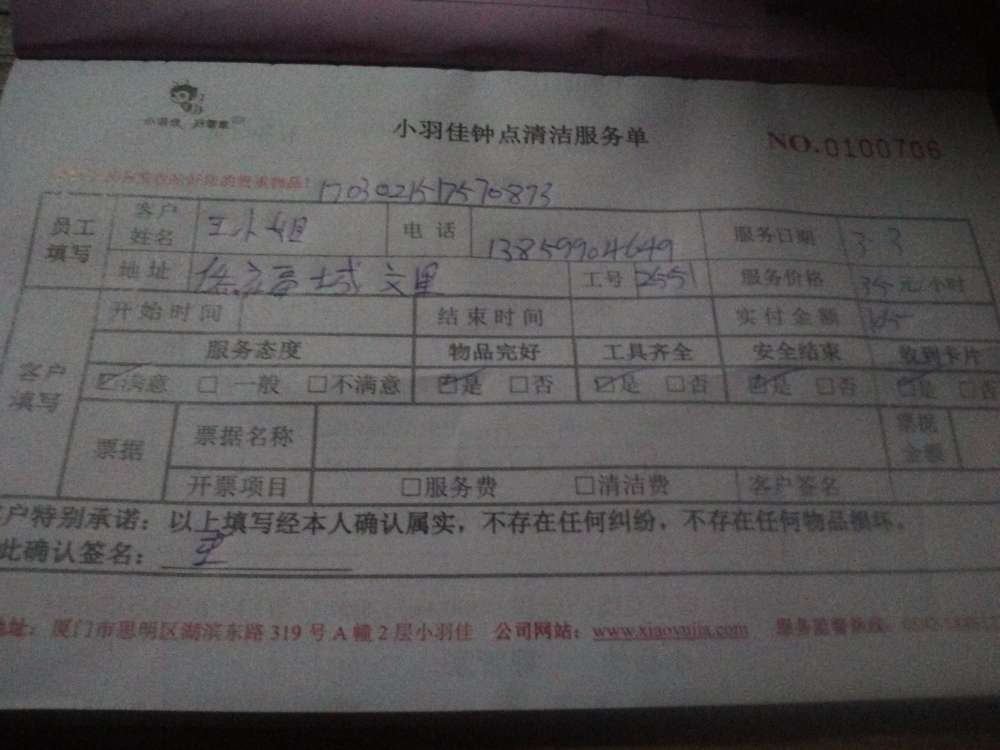 小羽佳
小羽佳钟点清洁服务单
NO.0100706
1703021517570873
员工填写 客户姓名 王小姐 电话 13859904649 服务日期 3.3
地址 文里 工号 2551 服务价格 35元/小时
客户填写 开始时间 结束时间 实付金额
服务态度 物品完好 工具齐全 安全结束 收到卡片
☑满意 □一般 □不满意 ☑是 □否 ☑是 □否 ☑是 □否 ☑是 □否
票据 票据名称 票据金额
开票项目 □服务费 □清洁费 客户签名
户特别承诺:以上填写经本人确认属实,不存在任何纠纷,不存在任何物品损坏。
此确认签名:王
地址:厦门市思明区湖滨东路 319 号 A 幢 2 层小羽佳 公司网站:www.xiaoyujia.com 服务监督热线: